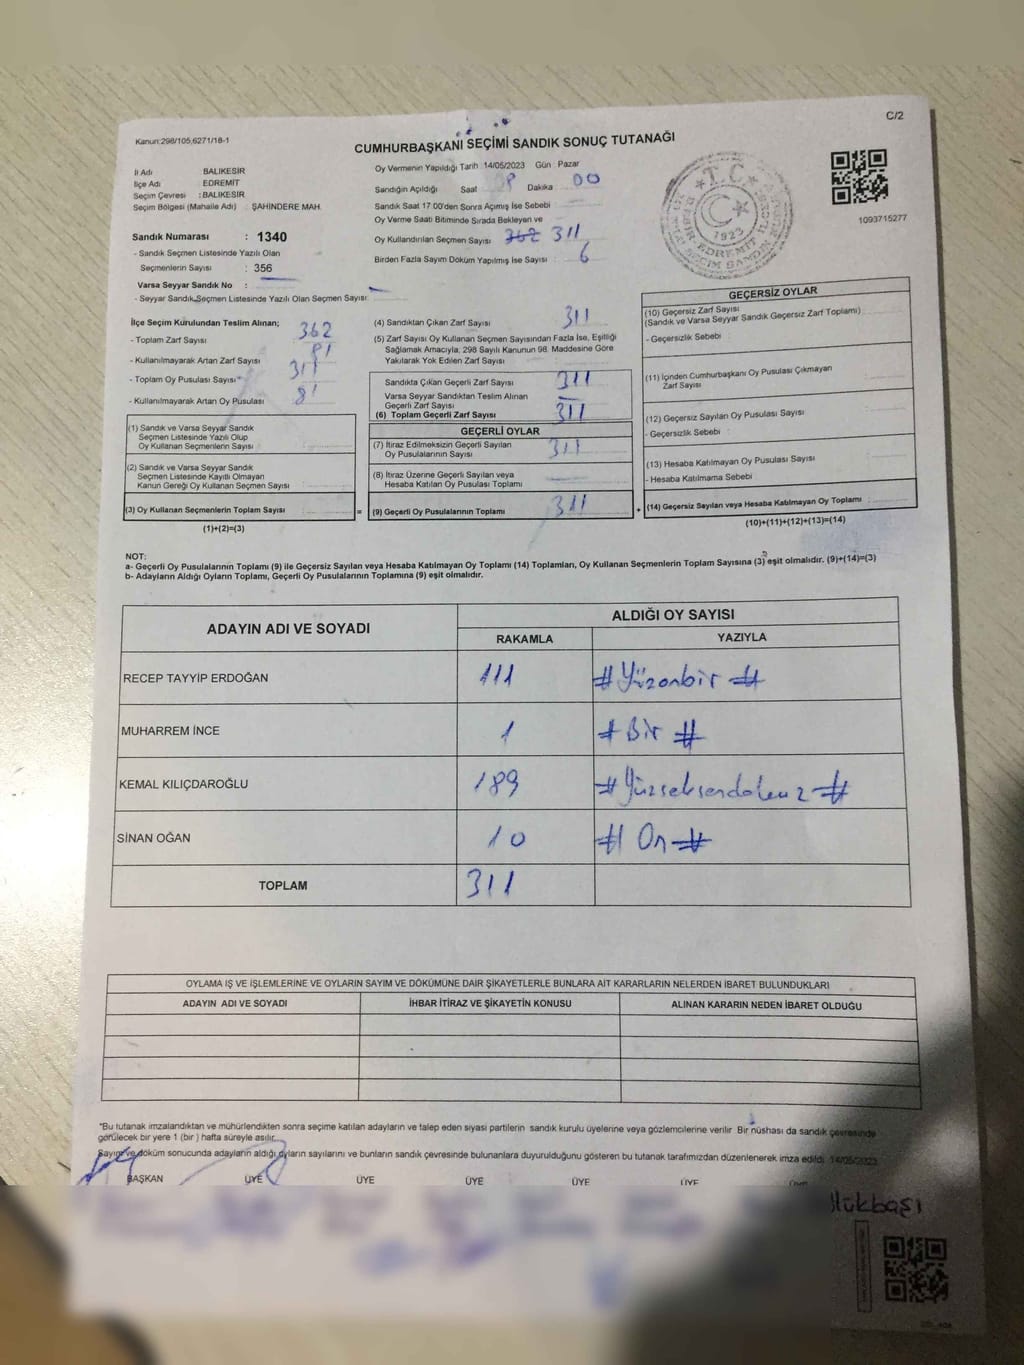 C/2
Kanun:298/105,6271/18-1
CUMHURBAŞKANI SEÇİMİ SANDIK SONUÇ TUTANAĞI
İl Adı BALIKESİR
İlçe Adı EDREMİT
Seçim Çevresi : BALIKESİR
Seçim Bölgesi (Mahalle Adı) : ŞAHİNDERE MAH.
Sandık Numarası : 1340
- Sandık Seçmen Listesinde Yazılı Olan
Seçmenlerin Sayısı : 356
Varsa Seyyar Sandık No :
- Seyyar Sandık Seçmen Listesinde Yazılı Olan Seçmen Sayısı:
Oy Vermenin Yapıldığı Tarih : 14/05/2023 Gün : Pazar
Sandığın Açıldığı Saat 08 Dakika 00
Sandık Saat 17.00'den Sonra Açımış İse Sebebi
Oy Verme Saati Bitiminde Sırada Bekleyen ve
Oy Kullandırılan Seçmen Sayısı 362 311
Birden Fazla Sayım Döküm Yapılmış İse Sayısı : 6
T.C.
1923
1093715277
İlçe Seçim Kurulundan Teslim Alınan;
- Toplam Zarf Sayısı 362
- Kullanılmayarak Artan Zarf Sayısı
- Toplam Oy Pusulası Sayısı 311
- Kullanılmayarak Artan Oy Pusulası
(1) Sandık ve Varsa Seyyar Sandık
Seçmen Listesinde Yazılı Olup
Oy Kullanan Seçmenlerin Sayısı :
(2) Sandık ve Varsa Seyyar Sandık
Seçmen Listesinde Kayıtlı Olmayan
Kanun Gereği Oy Kullanan Seçmen Sayısı :
(3) Oy Kullanan Seçmenlerin Toplam Sayısı :
(1)+(2)=(3)
(4) Sandıktan Çıkan Zarf Sayısı : 311
(5) Zarf Sayısı Oy Kullanan Seçmen Sayısından Fazla İse, Eşitliği
Sağlamak Amacıyla; 298 Sayılı Kanunun 98. Maddesine Göre
Yakılarak Yok Edilen Zarf Sayısı :
Sandıkta Çıkan Geçerli Zarf Sayısı : 311
Varsa Seyyar Sandıktan Teslim Alınan
Geçerli Zarf Sayısı :
(6) Toplam Geçerli Zarf Sayısı : 311
GEÇERLİ OYLAR
(7) İtiraz Edilmeksizin Geçerli Sayılan
Oy Pusulalarının Sayısı : 311
(8) İtiraz Üzerine Geçerli Sayılan veya
Hesaba Katılan Oy Pusulası Toplamı :
= (9) Geçerli Oy Pusulalarının Toplamı : 311
GEÇERSİZ OYLAR
(10) Geçersiz Zarf Sayısı
(Sandık ve Varsa Seyyar Sandık Geçersiz Zarf Toplamı) :
- Geçersizlik Sebebi :
(11) İçinden Cumhurbaşkanı Oy Pusulası Çıkmayan
Zarf Sayısı :
(12) Geçersiz Sayılan Oy Pusulası Sayısı :
- Geçersizlik Sebebi :
(13) Hesaba Katılmayan Oy Pusulası Sayısı :
- Hesaba Katılmama Sebebi :
+ (14) Geçersiz Sayılan veya Hesaba Katılmayan Oy Toplamı :
(10)+(11)+(12)+(13)=(14)
NOT:
a- Geçerli Oy Pusulalarının Toplamı (9) ile Geçersiz Sayılan veya Hesaba Katılmayan Oy Toplamı (14) Toplamları, Oy Kullanan Seçmenlerin Toplam Sayısına (3) eşit olmalıdır. (9)+(14)=(3)
b- Adayların Aldığı Oyların Toplamı, Geçerli Oy Pusulalarının Toplamına (9) eşit olmalıdır.
ADAYIN ADI VE SOYADI ALDIĞI OY SAYISI
RAKAMLA YAZIYLA
RECEP TAYYİP ERDOĞAN 111 #Yüzonbir#
MUHARREM İNCE 1 #Bir#
KEMAL KILIÇDAROĞLU 189 #Yüzseksendokuz#
SİNAN OĞAN 10 #On#
TOPLAM 311
OYLAMA İŞ VE İŞLEMLERİNE VE OYLARIN SAYIM VE DÖKÜMÜNE DAİR ŞİKAYETLERLE BUNLARA AİT KARARLARIN NELERDEN İBARET BULUNDUKLARI
ADAYIN ADI VE SOYADI İHBAR İTİRAZ VE ŞİKAYETİN KONUSU ALINAN KARARIN NEDEN İBARET OLDUĞU
*Bu tutanak imzalandıktan ve mühürlendikten sonra seçime katılan adayların ve talep eden siyasi partilerin sandık kurulu üyelerine veya gözlemcilerine verilir. Bir nüshası da sandık çevresinde
görülecek bir yere 1 (bir) hafta süreyle asılır.
Sayım ve döküm sonucunda adayların aldığı oyların sayılarını ve bunların sandık çevresinde bulunanlara duyurulduğunu gösteren bu tutanak tarafımızdan düzenlenerek imza edildi. 14/05/2023
BAŞKAN ÜYE ÜYE ÜYE ÜYE ÜYE ÜYE